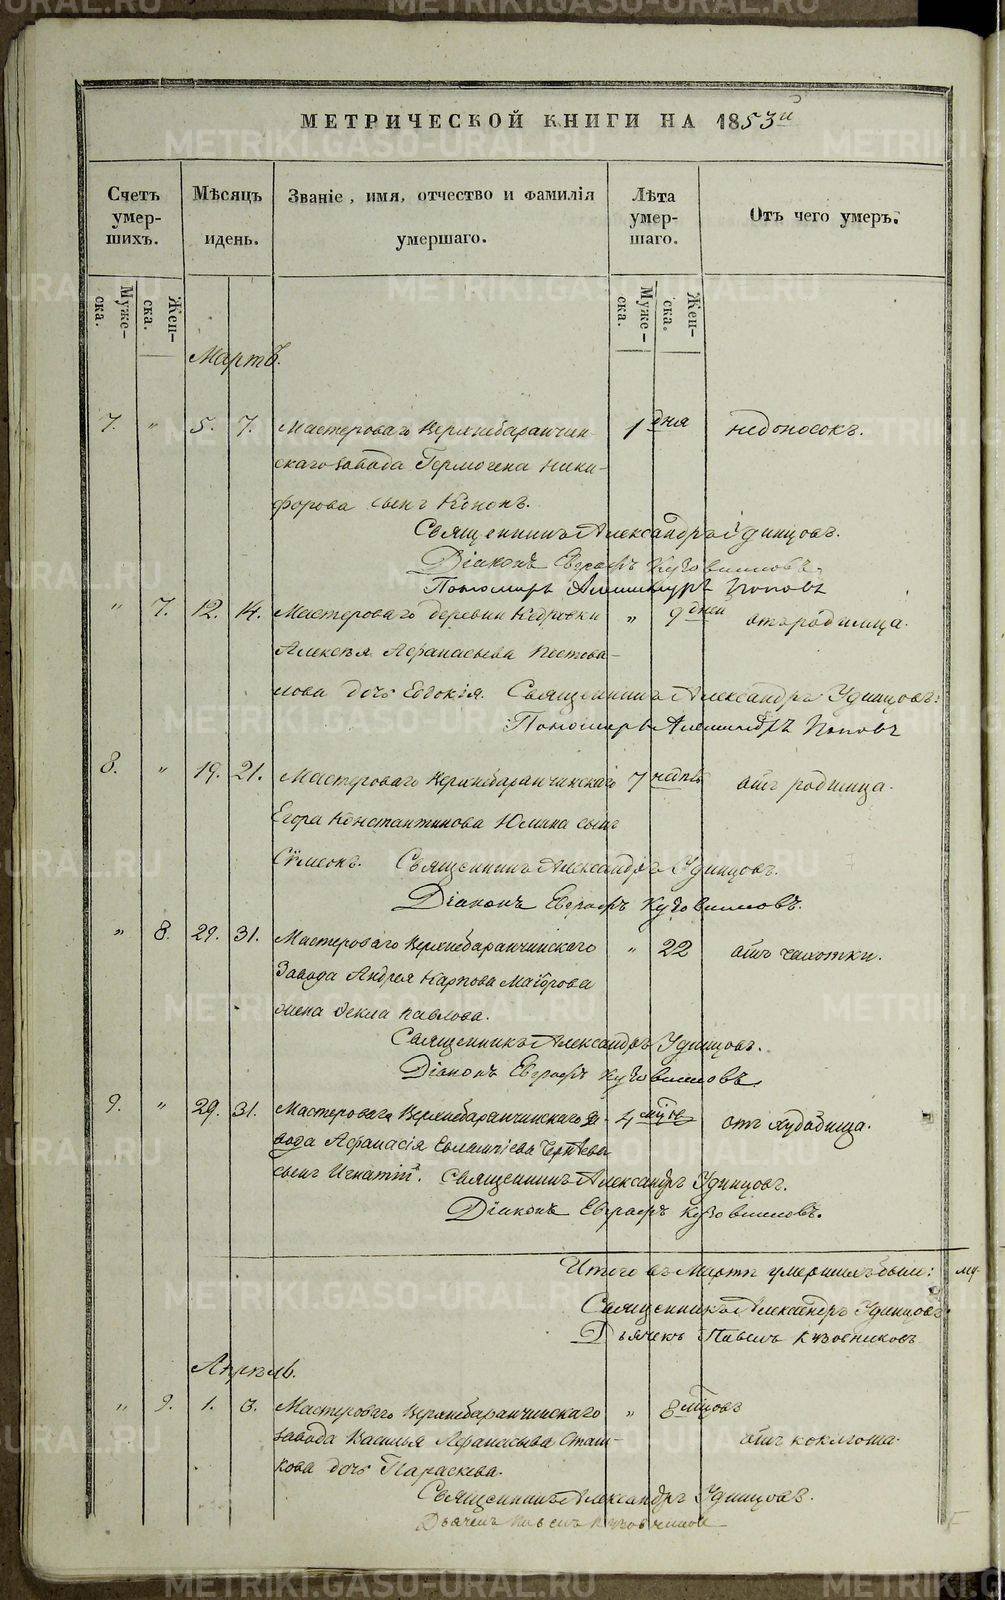 МЕТРИЧЕСКОЙ КНИГИ НА 1853й
Счетъ умер-шихъ.
Мѣсяцъ и день.
Званіе, имя, отчество и фамилія умершаго.
Лѣта умер-шаго.
Отъ чего умеръ.
Муже-ска.
Жен-ска.
Муже-ска.
Жен-ска.
Мартъ.
7. " 5. 7. Мастероваго Верхнебаранчин- 1 дня недоносокъ.
скаго завода Гермогена Ники-
форова сынъ Кононъ.
Священникъ Александръ Удинцовъ.
Діаконъ Евграфъ Кузовниковъ.
Пономарь Александръ Поповъ
" 7. 12. 14. Мастероваго деревни Кедровки " 9 дней отъ родимца.
Алексѣя Афанасьева
лова дочь Евдокія. Священникъ Александръ Удинцовъ.
Пономарь Александръ Поповъ
8. " 19. 21. Мастероваго Верхнебаранчинскаго 7 недѣль отъ родимца.
Егора Константинова Юлина сынъ
Сѵмеонъ. Священникъ Александръ Удинцовъ.
Діаконъ Евграфъ Кузовниковъ.
" 8. 29. 31. Мастероваго Верхнебаранчинскаго " 22 отъ чахотки.
завода Андрея Карпова Маіорова
жена Фекла Павлова.
Священникъ Александръ Удинцовъ.
Діаконъ Евграфъ Кузовниковъ.
9. " 29. 31. Мастероваго Верхнебаранчинскаго за- 4 отъ худобища.
вода Афанасія Евлампіева
сынъ Игнатій. Священникъ Александръ Удинцовъ.
Діаконъ Евграфъ Кузовниковъ.
Итого въ Мартѣ умершихъ было: му-
Священникъ Александръ Удинцовъ.
Дьячекъ Павелъ Кузовниковъ
Апрѣль.
" 9. 1. 3. Мастероваго Верхнебаранчинскаго " 8 мѣсцовъ
завода Василья Афанасьева Сташ- отъ коклюша.
кова дочь Параскева.
Священникъ Александръ Удинцовъ.
Дьячекъ Павелъ Кузовниковъ
METRIKI.GASO-URAL.RU